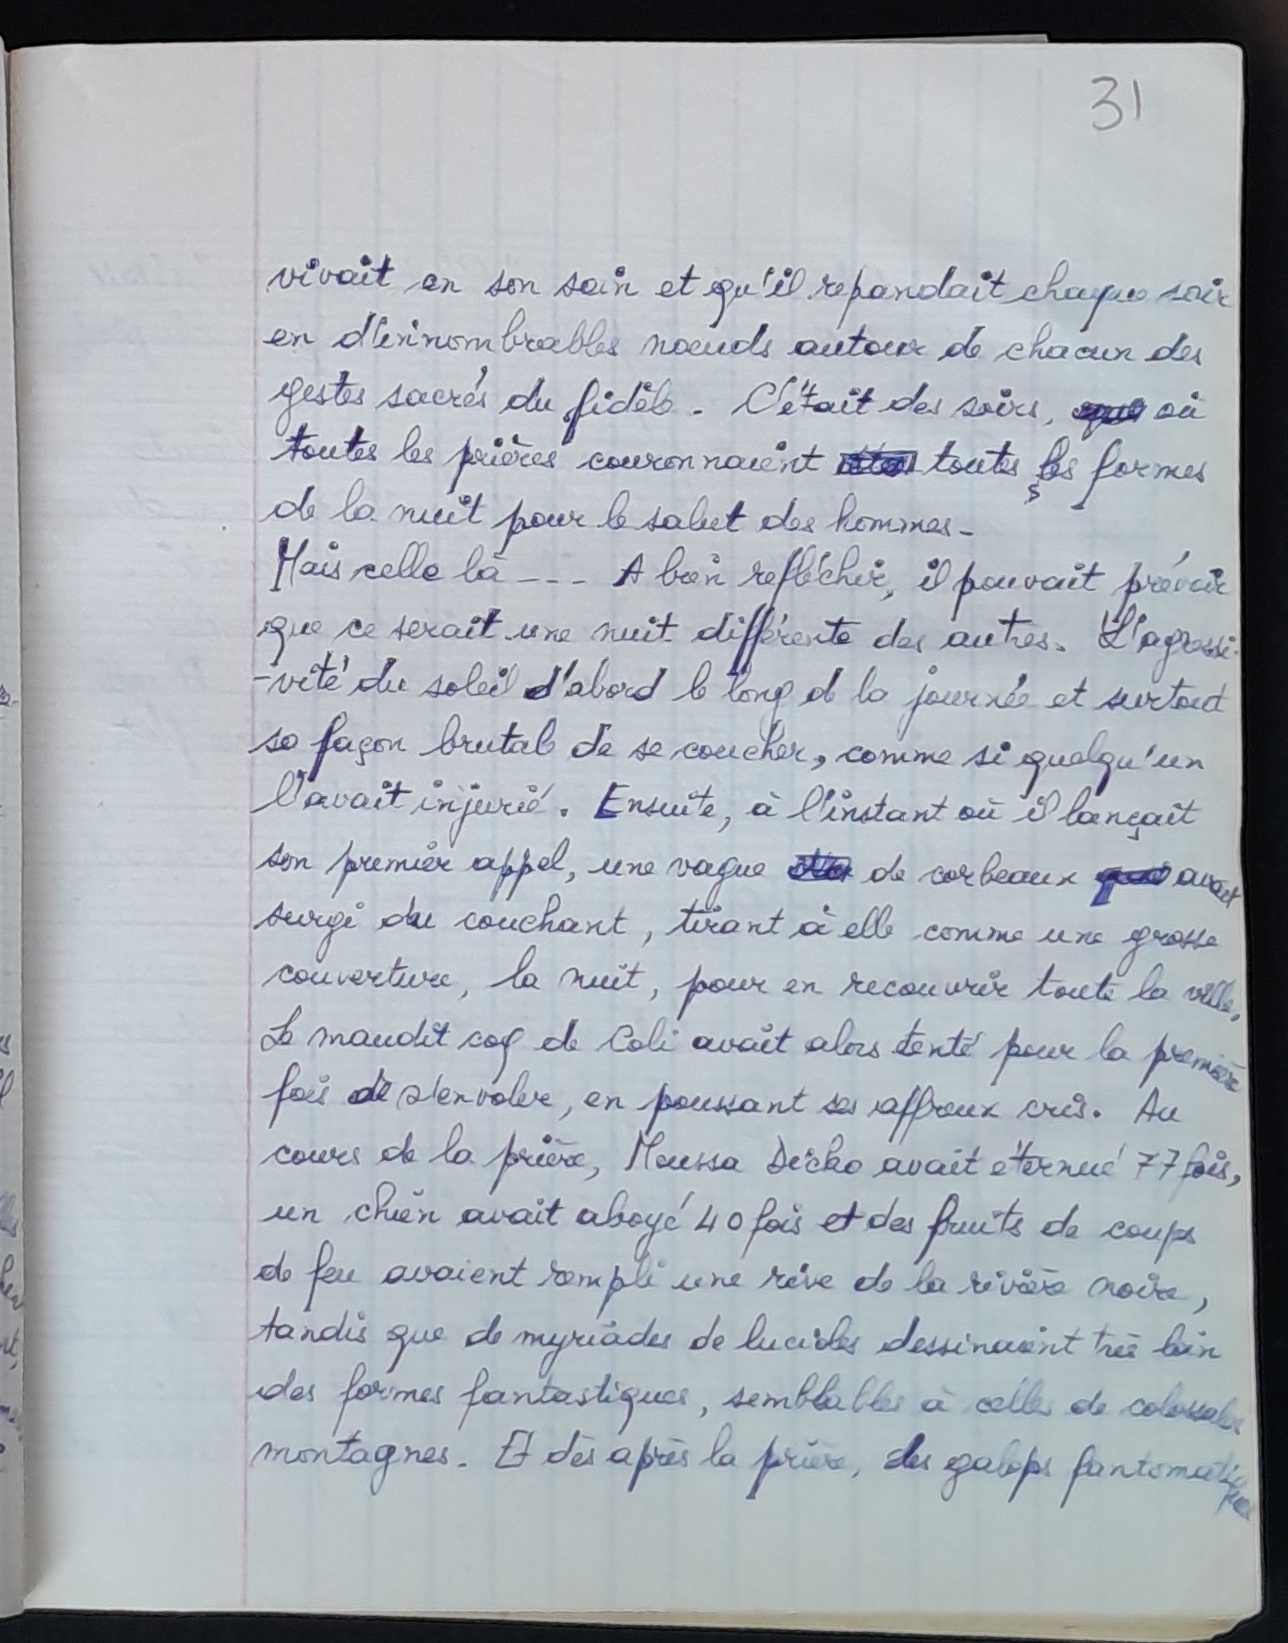 31
vivait en son sein et qu'il repandait chaque soir
en d'innombrables nœuds autour de chacun des
gestes sacrés du fidèle. C'était des soirs, où
toutes les prières couronnaient toutes les formes
de la nuit pour le salut des hommes.
Mais celle là --- A bien refléchir, il pouvait prévoir
que ce serait une nuit différente des autres. L'agressi-
-vité du soleil d'abord le long de la journée et surtout
sa façon brutale de se coucher, comme si quelqu'un
l'avait injurié. Ensuite, à l'instant où il lançait
son premier appel, une vague de corbeaux avait
surgi du couchant, tirant à elle comme une grosse
couverture, la nuit, pour en recouvrir toute la ville.
Le maudit coq de Coli avait alors tenté pour la première
fois de s'envoler, en poussant ses affreux cris. Au
cours de la prière, Moussa Dicko avait éternué 77 fois,
un chien avait aboyé 40 fois et des fruits de coups
de feu avaient rempli une rive de la rivière noire,
tandis que de myriades de lucioles dessinaient très loin
des formes fantastiques, semblables à celles de colossales
montagnes. Et dès après la prière, des galops fantomatiques